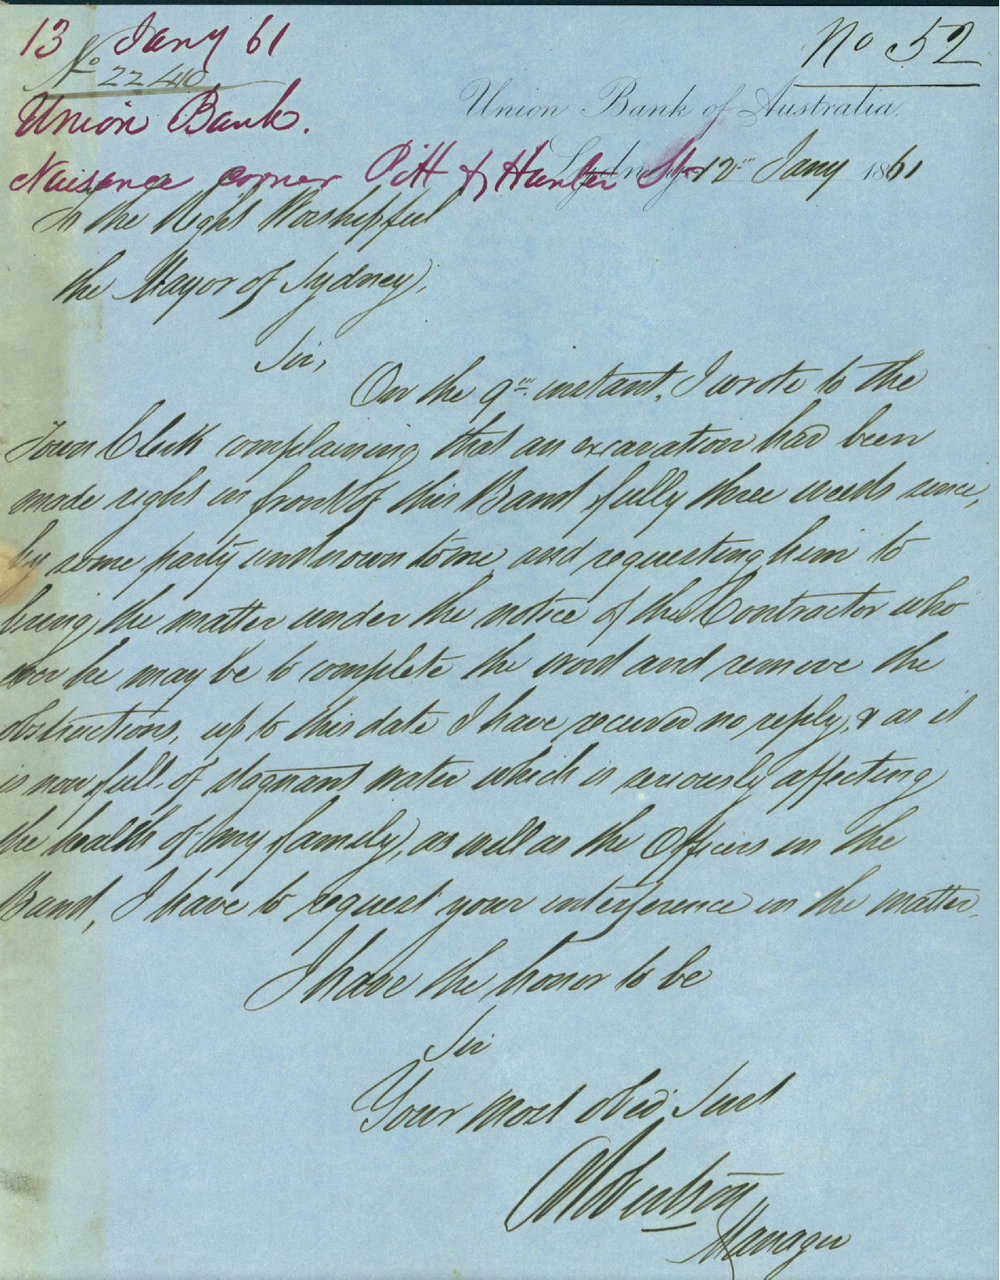 13 Jany 61
No 22 410
No 52
Union Bank.
Union Bank of Australia.
Nuisance corner Pitt & Hunter St
Sydney 12th Jany 1861
To the Right Worshipful
the Mayor of Sydney,
Sir,
On the 9th instant, I wrote to the
Town Clerk complaining that an excavation had been
made right in front of this Bank fully three weeks since,
by some party unknown to me, and requesting him to
bring the matter under the notice of the Contractor who
ever he may be to complete the work and remove the
obstructions, up to this date I have received no reply, & as it
is now full of stagnant water which is seriously affecting
the health of my family, as well as the Officers in the
Bank, I have to request your interference in the matter.
I have the honor to be
Sir
Your most obed Servt
Robertson
Manager